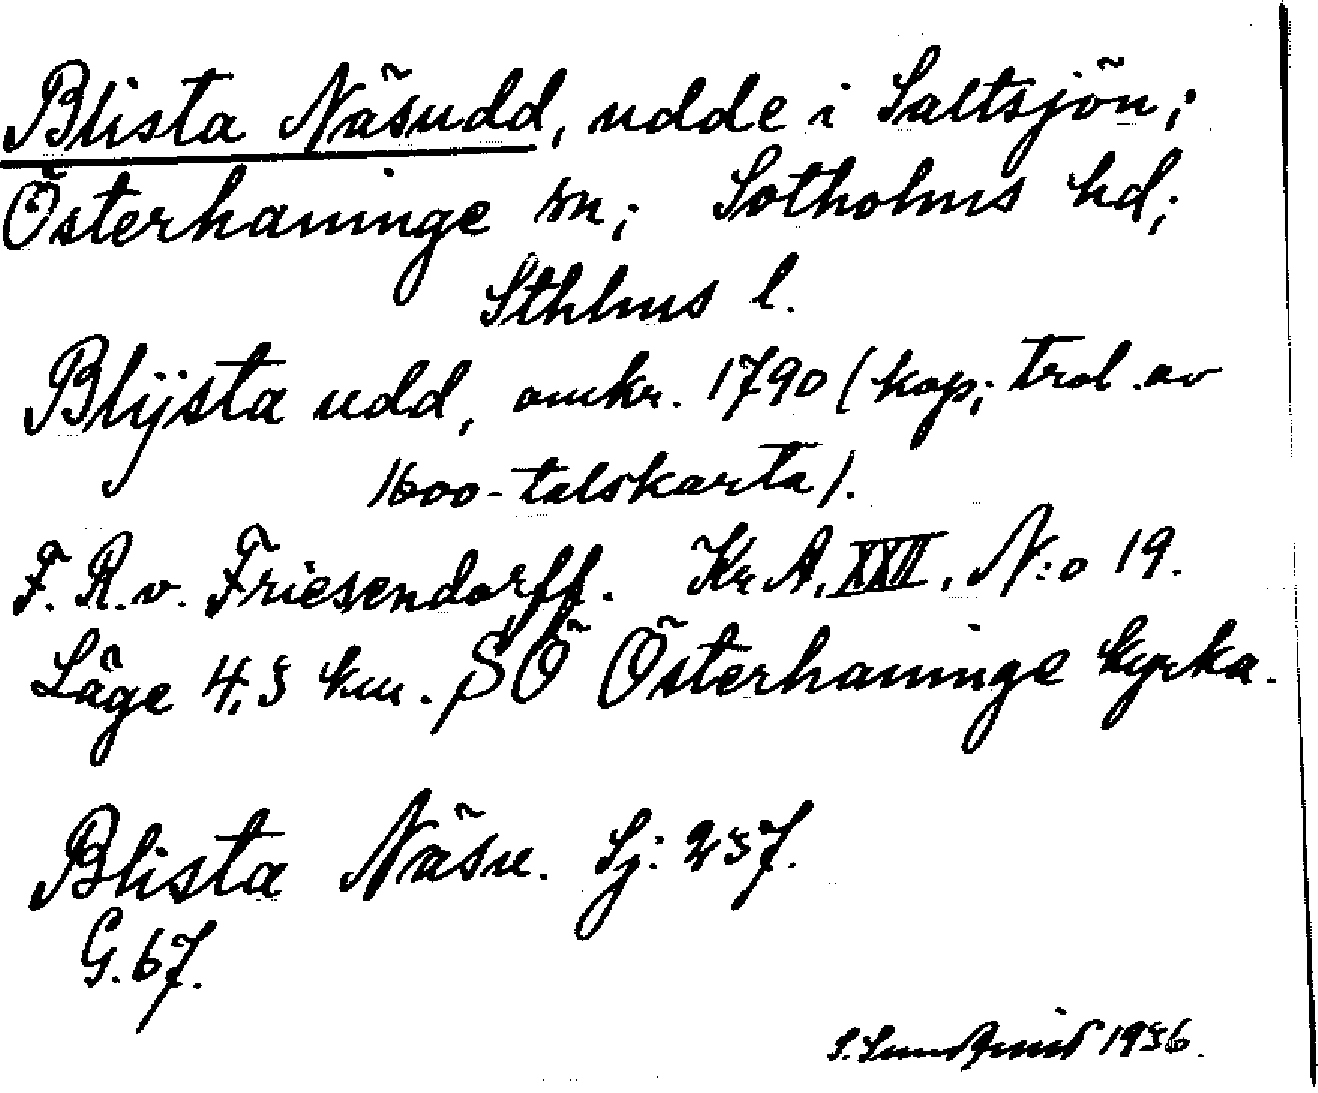 Blista Näsudd, udde i Saltsjön;
Österhaninge sn; Sotholms hd;
Sthlms l.
Blÿsta udd, omkr. 1790 (kop; trol. av
1600-talskarta).
F. R. v. Friesendorff. Kr. A. XXII, N:o 19.
Läge 4,5 km. SÖ Österhaninge kyrka.
Blista Näsu. Sj: 237.
G. 67.
S. Lundqvist 1936.